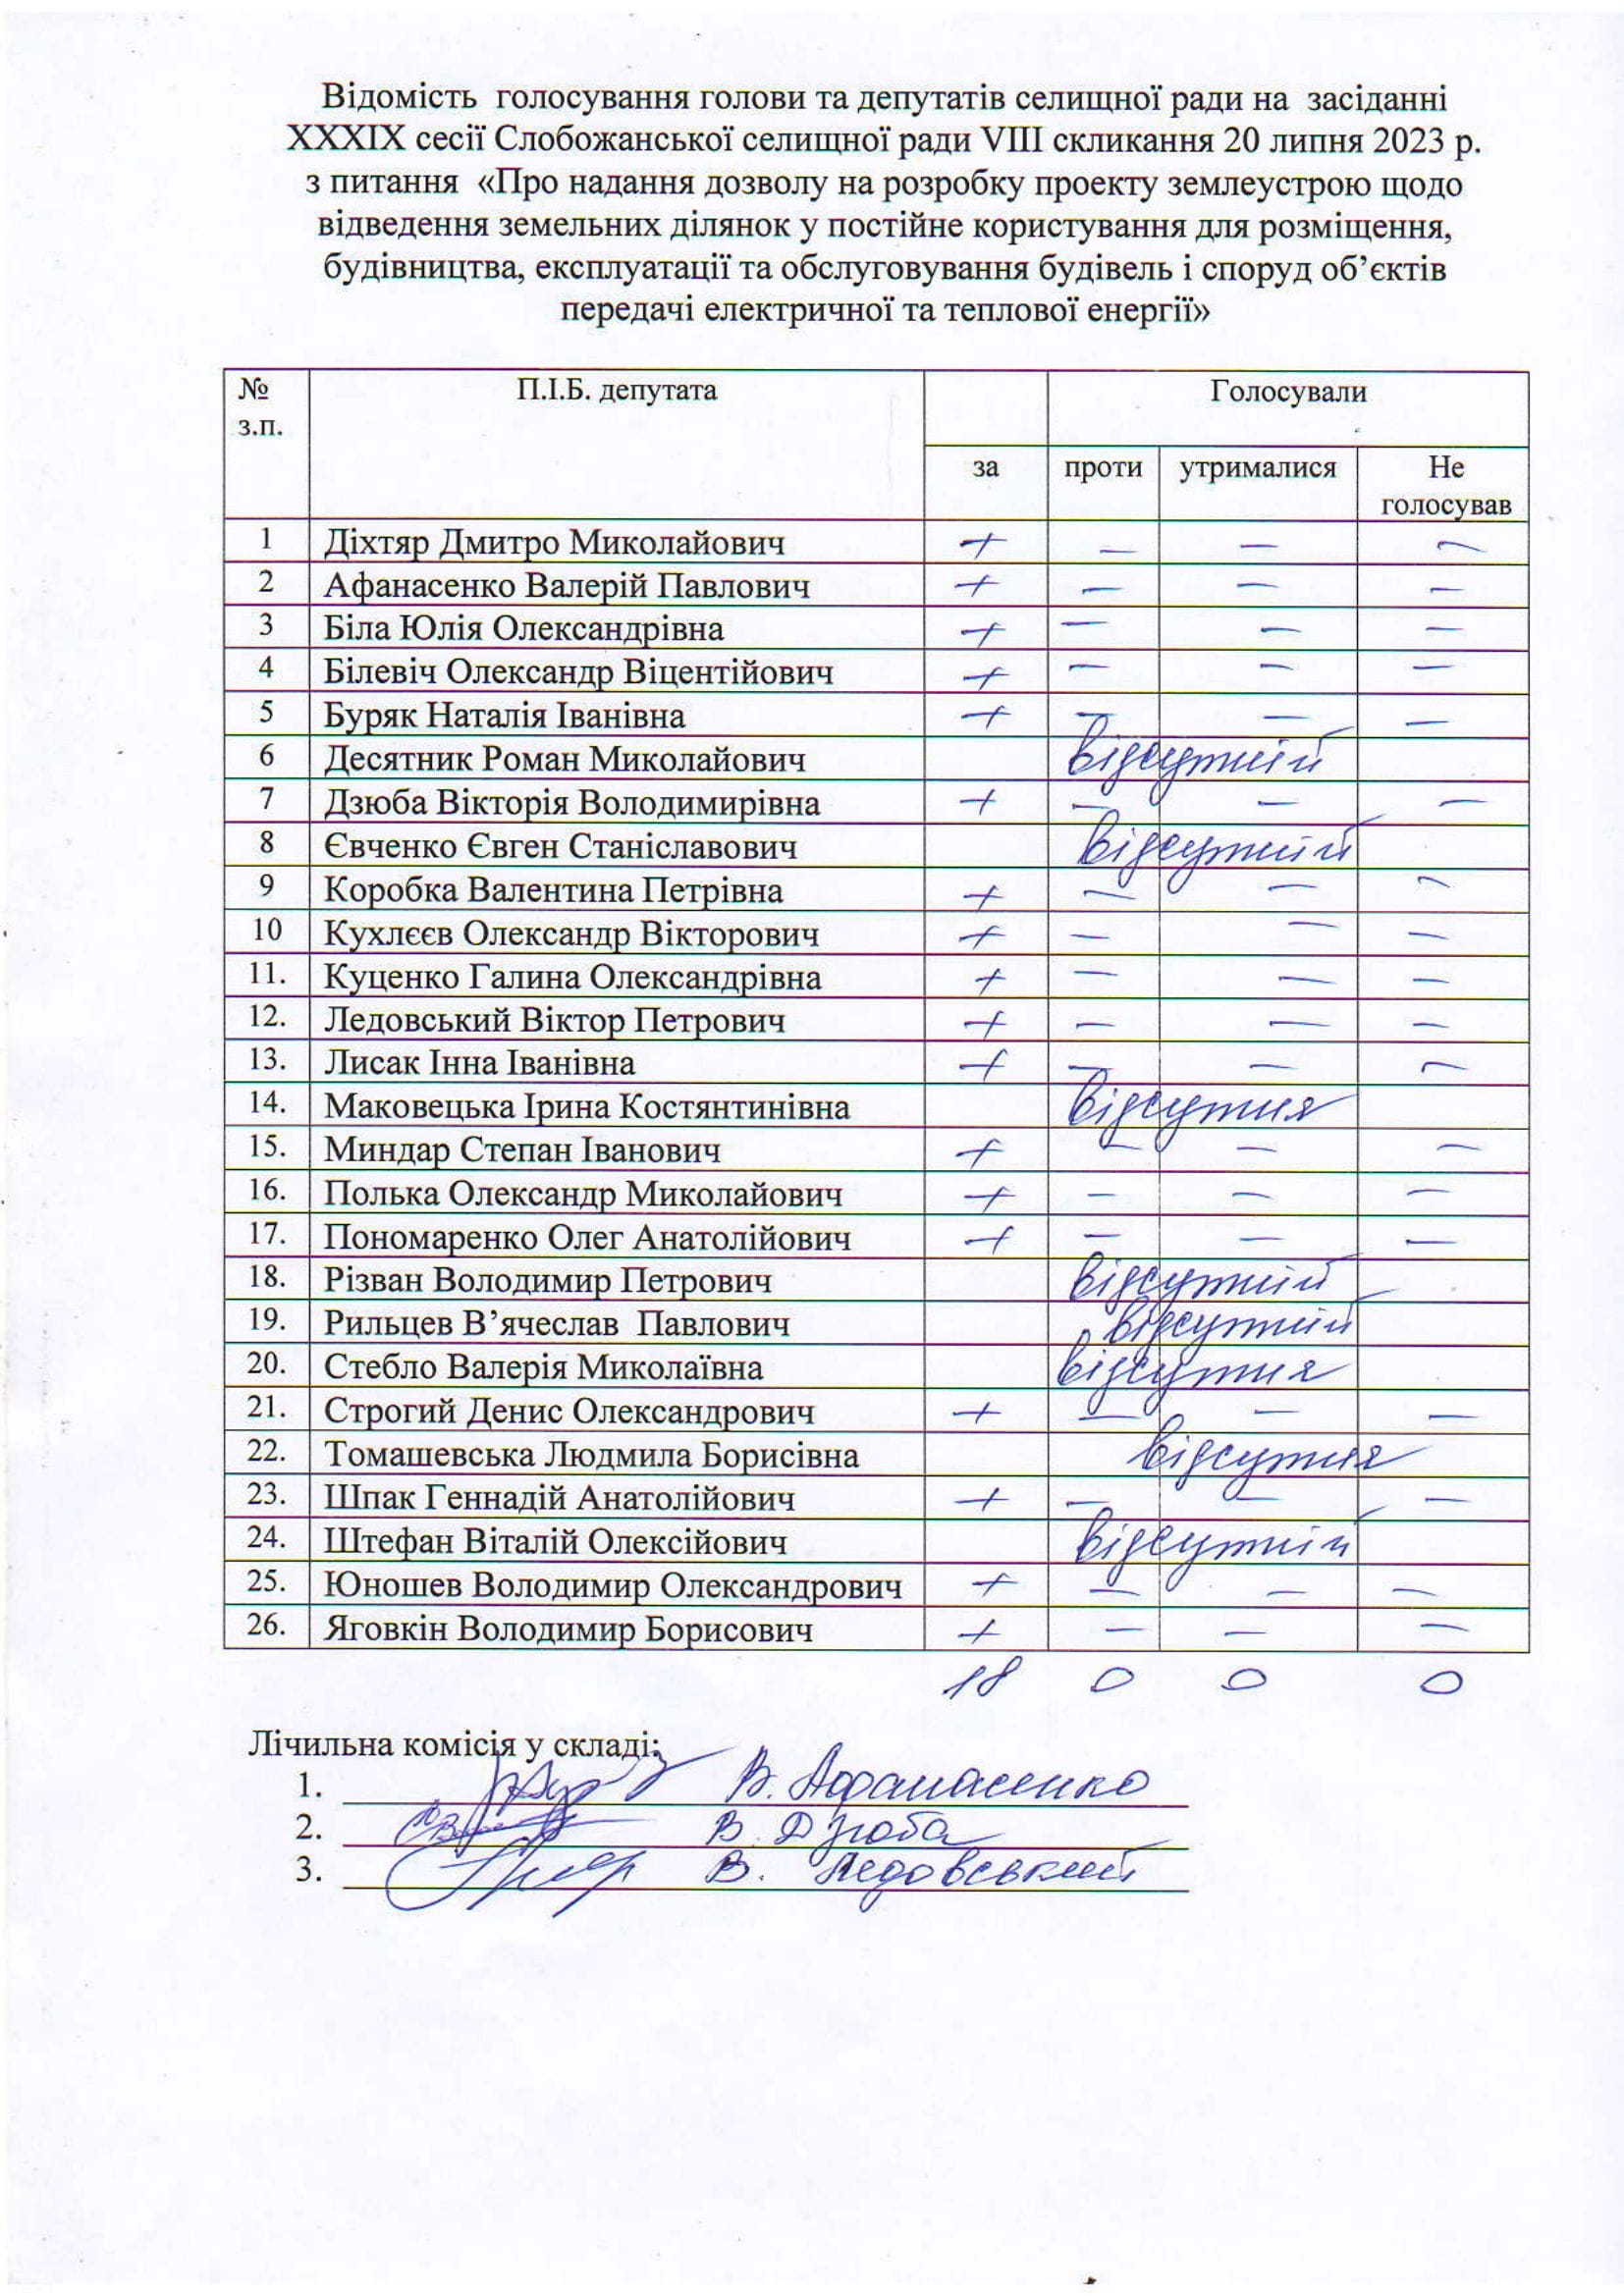 Відомість голосування голови та депутатів селищної ради на засіданні
XXXIX сесії Слобожанської селищної ради VIII скликання 20 липня 2023 р.
з питання «Про надання дозволу на розробку проекту землеустрою щодо
відведення земельних ділянок у постійне користування для розміщення,
будівництва, експлуатації та обслуговування будівель і споруд об’єктів
передачі електричної та теплової енергії»
№ з.п. П.І.Б. депутата Голосували
за проти утрималися Не голосував
1 Діхтяр Дмитро Миколайович + – – –
2 Афанасенко Валерій Павлович + – – –
3 Біла Юлія Олександрівна + – – –
4 Білевіч Олександр Віцентійович + – – –
5 Буряк Наталія Іванівна + – – –
6 Десятник Роман Миколайович відсутній
7 Дзюба Вікторія Володимирівна + – – –
8 Євченко Євген Станіславович відсутній
9 Коробка Валентина Петрівна + – – –
10 Кухлєєв Олександр Вікторович + – – –
11. Куценко Галина Олександрівна + – – –
12. Ледовський Віктор Петрович + – – –
13. Лисак Інна Іванівна + – – –
14. Маковецька Ірина Костянтинівна відсутня
15. Миндар Степан Іванович + – – –
16. Полька Олександр Миколайович + – – –
17. Пономаренко Олег Анатолійович + – – –
18. Різван Володимир Петрович відсутній
19. Рильцев В’ячеслав Павлович відсутній
20. Стебло Валерія Миколаївна відсутня
21. Строгий Денис Олександрович + – – –
22. Томашевська Людмила Борисівна відсутня
23. Шпак Геннадій Анатолійович + – – –
24. Штефан Віталій Олексійович відсутній
25. Юношев Володимир Олександрович + – – –
26. Яговкін Володимир Борисович + – – –
18 0 0 0
Лічильна комісія у складі:
1. В. Афанасенко
2. В. Дзюба
3. В. Ледовський